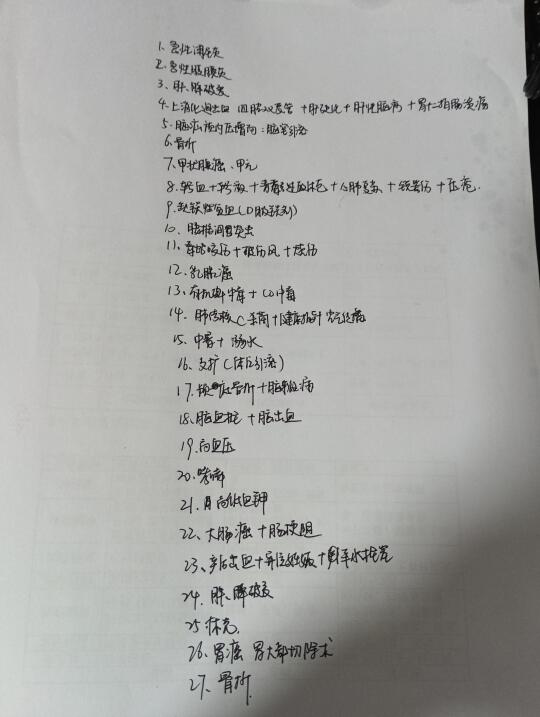 1、急性胰腺炎
2、急性腹膜炎
3、肝、脾破裂
4、上消化道出血 四腔双囊管+肝硬化+肝性脑病+胃十二指肠溃疡
5、脑疝 颅内压增高：脑室引流
6、骨折
7、甲状腺癌、甲亢
8、输血+输液+青霉素过敏性休克+心肺复苏+烧伤+压疮.
9、缺铁性贫血(口服铁剂)
10、腰椎间盘突出
11、毒蛇咬伤+破伤风+烧伤
12、乳腺癌
13、有机磷中毒+CO中毒
14、肺结核(杀菌
15、中暑+溺水
16、支扩(体位引流)
17、颅底骨折+脑
18、脑血栓+脑出血
19、高血压
20、哮喘
21、高低血钾
22、大肠癌+肠梗阻
23、产后出血+异位妊娠+羊水栓塞
24、肝、脾破裂
25、休克,
26、胃癌 胃大部切除术
27、骨折.